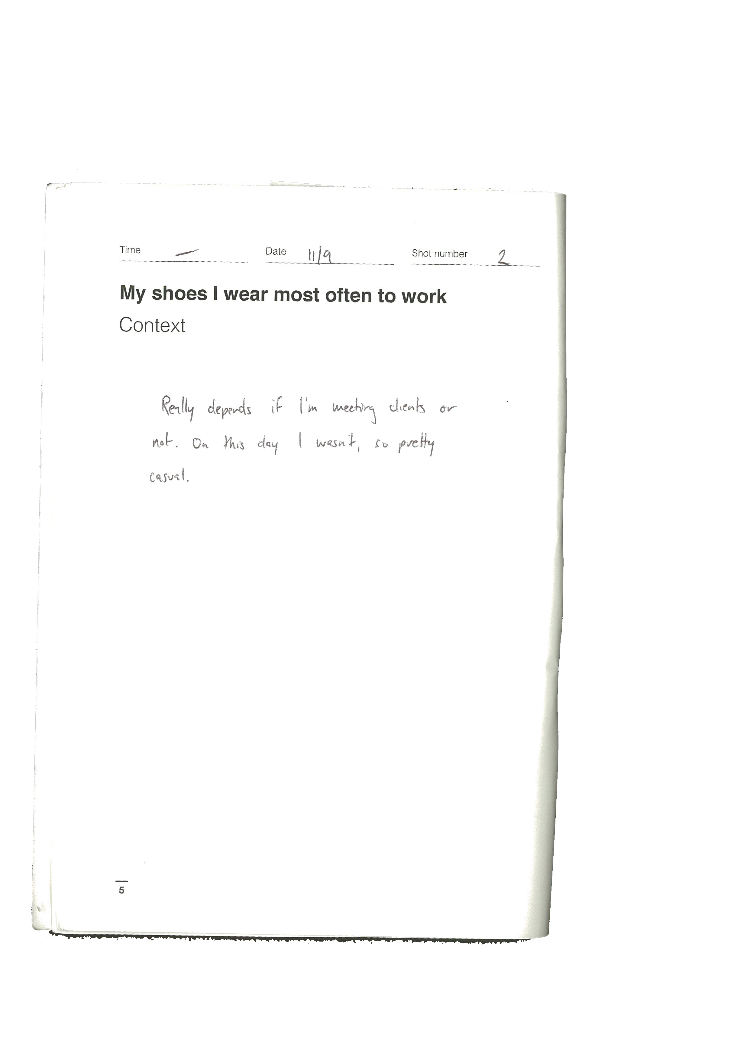 Time — Date 11/9 Shot number 2
My shoes I wear most often to work
Context
Really depends if I'm meeting clients or
not. On this day I wasn't, so pretty
casual.
5